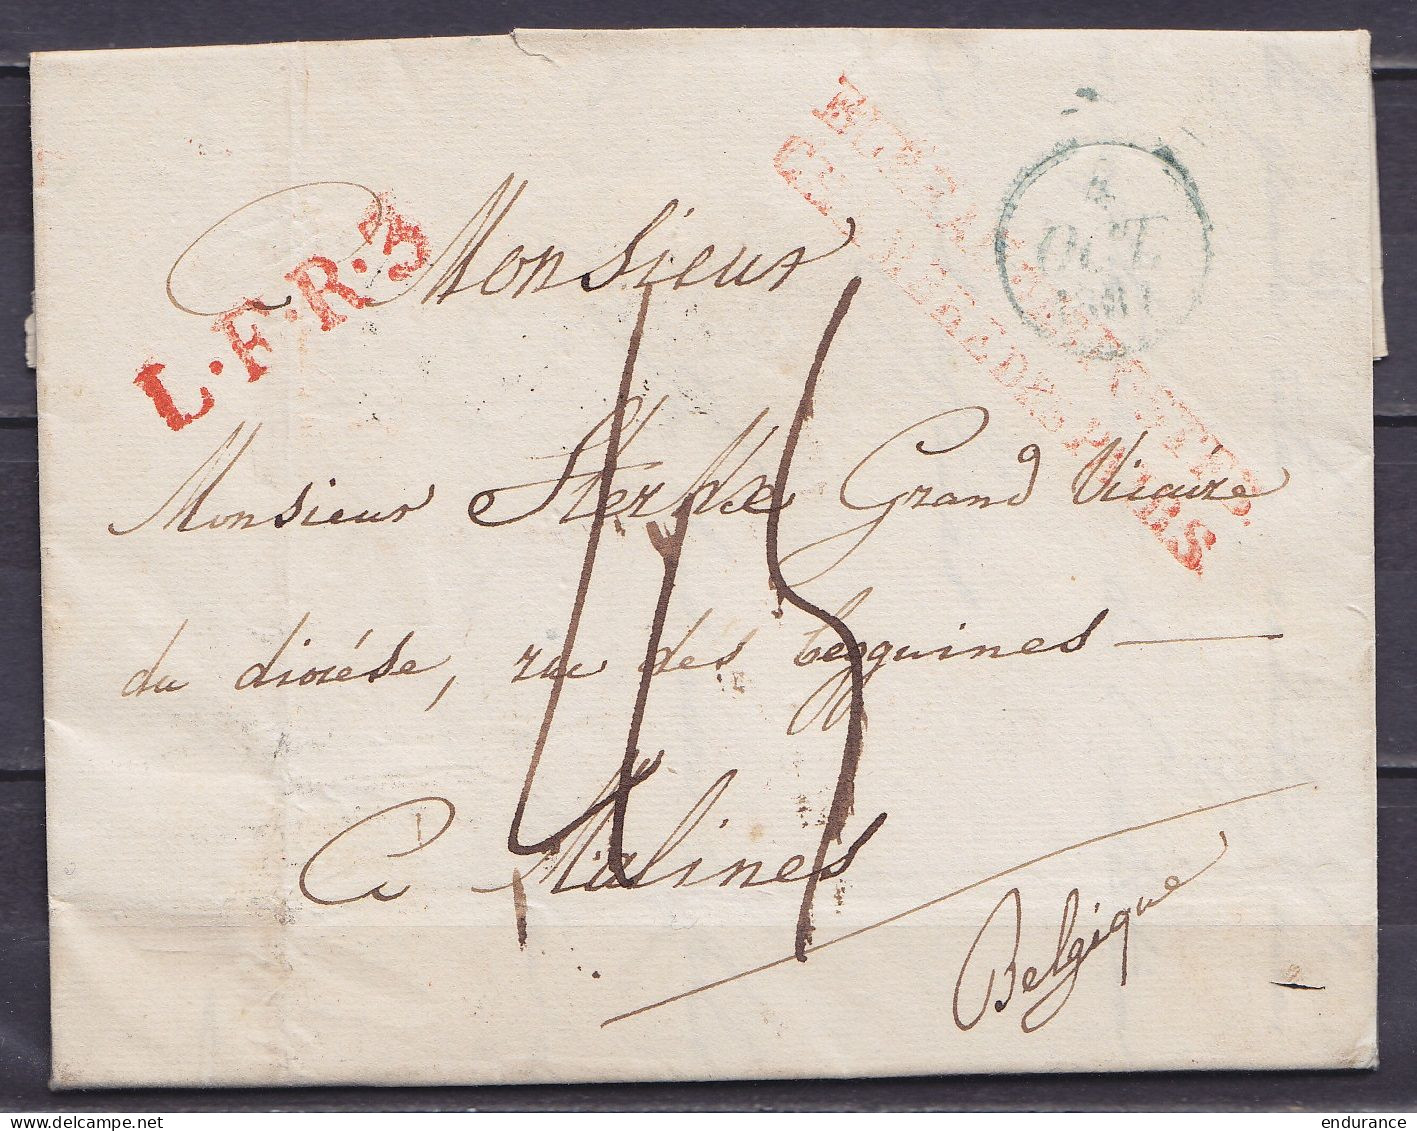 L.F.R.3
4
OCT
Monsieur
Monsieur Sterckx Grand Vicaire
du diocése, rue des begguines
a Malines
Belgique
endurance